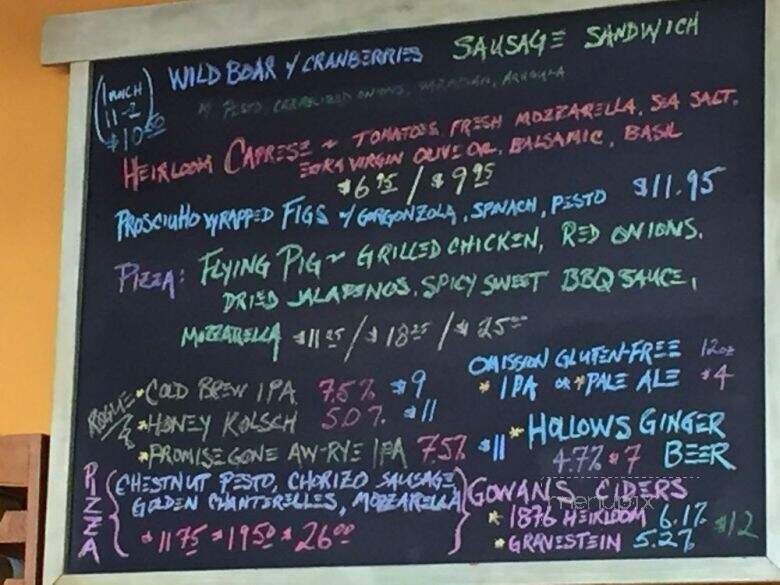 WILD BOAR w/ CRANBERRIES SAUSAGE SANDWICH
(LUNCH
11-2
$10.50)
w/ PESTO, CARMELIZED ONIONS, PARMESAN, ARUGULA
HEIRLOOM CAPRESE ~ TOMATOES, FRESH MOZZARELLA, SEA SALT,
EXTRA VIRGIN OLIVE OIL, BALSAMIC, BASIL
$6.95 / $9.95
PROSCIUTTO WRAPPED FIGS w/ GORGONZOLA, SPINACH, PESTO $11.95
PIZZA: FLYING PIG ~ GRILLED CHICKEN, RED ONIONS,
DRIED JALAPENOS, SPICY SWEET BBQ SAUCE,
MOZZARELLA $11.25 / $18.25 / $25.00
ROGUE
*COLD BREW IPA 7.5% $9
*HONEY KOLSCH 5.0% $11
*PROMISE GONE AW-RYE IPA 7.5% $11
OMISSION GLUTEN-FREE 12oz
*IPA OR *PALE ALE $4
*HOLLOWS GINGER
4.7% $7 BEER
PIZZA
{CHESTNUT PESTO, CHORIZO SAUSAGE
GOLDEN CHANTERELLES, MOZZARELLA}
$11.75 $19.50 $26.00
GOWANS CIDERS
*1876 HEIRLOOM 6.1% $12
*GRAVESTEIN 5.2%
menupix